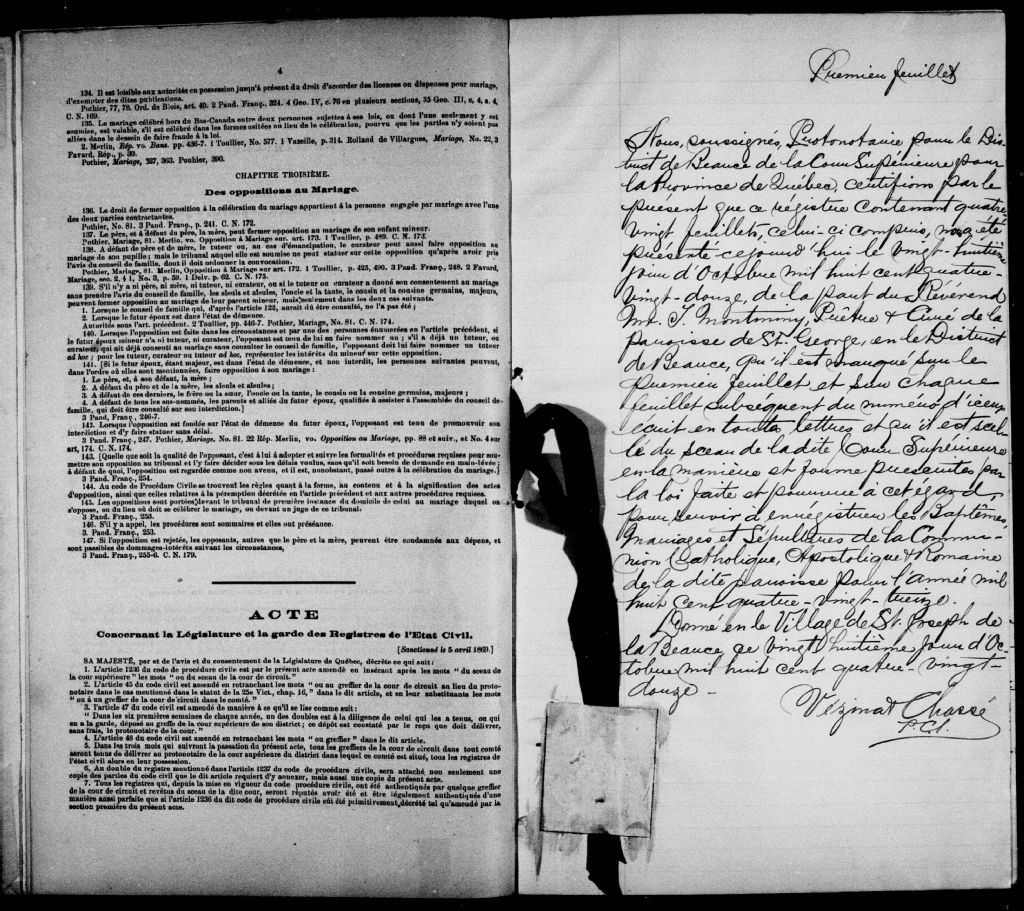 4
134. Il est loisible aux autorités en possession jusqu'à présent du droit d'accorder des licences ou dispenses pour mariage,
d'exempter des dites publications.
Pothier, 77, 78. Ord. de Blois, art. 40. 2 Pand. Franç., 324. 4 Geo. IV, c. 76 en plusieurs sections, 35 Geo. III, c, 4, s. 4.
C. N. 169.
135. Le mariage célébré hors du Bas-Canada entre deux personnes sujettes à ses lois, ou dont l'une seulement y est
soumise, est valable, s'il est célébré dans les formes usitées au lieu de la célébration, pourvu que les parties n'y soient pas
allées dans le dessein de faire fraude à la loi.
2. Merlin, Rép. vo. Bans. pp. 436-7. 1 Toullier, No. 577. 1 Vazeille, p. 314. Rolland de Villargues, Mariage, No. 22, 3
Favard, Rép., p. 30.
Pothier, Mariage, 327, 363. Pouhier, 390.
CHAPITRE TROISIÈME.
Des oppositions au Mariage.
136. Le droit de former opposition à la célébration du mariage appartient à la personne engagée par mariage avec l'une
des deux parties contractantes.
Pothier, No. 81. 3 Pand. Franç., p. 241. C. N. 172.
137. Le père, et à défaut du père, la mère, peut former opposition au mariage de son enfant mineur.
Pothier, Mariage, 81. Merlin. vo. Opposition à Mariage sur. art. 173. 1 Toullier, p. 489. C. N. 173.
138. A défaut de père et de mère, le tuteur ou, au cas d'émancipation, le curateur peut aussi faire opposition au
mariage de son pupille; mais le tribunal auquel elle est soumise ne peut statuer sur cette opposition qu'après avoir pris
l'avis du conseil de famille, dont il doit ordonner la convocation.
Pothier, Mariage, 81. Merlin, Opposition à Mariage sur art. 172. 1 Toullier, p. 425, 490. 3 Pand. Franç., 248. 2 Favard,
Mariage, sec. 2, § 1, No. 3, p. 59. 1 Delv. p. 62. C. N. 175.
139. S'il n'y a ni père, ni mère, ni tuteur, ni curateur, ou si le tuteur ou curateur a donné son consentement au mariage
sans prendre l'avis du conseil de famille, les aïeuls et aïeules, l'oncle et la tante, le cousin et la cousine germains, majeurs,
peuvent former opposition au mariage de leur parent mineur, mais seulement dans les deux cas suivants.
1. Lorsque le conseil de famille qui, d'après l'article 122, aurait dû être consulté, ne l'a pas été;
2. Lorsque le futur époux est dans l'état de démence.
Autorités sous l'art. précédent. 2 Toullier, pp. 446-7. Pothier, Mariage, No. 81. C. N. 174.
140. Lorsque l'opposition est faite dans les circonstances et par une des personnes énumérées en l'article précédent, si
le futur époux mineur n'a ni tuteur, ni curateur, l'opposant est tenu de lui en faire nommer un; s'il a déjà un tuteur, ou
curateur, qui ait déjà consenti au mariage sans consulter le conseil de famille, l'opposant doit lui faire nommer un tuteur
ad hoc; pour les tuteur, curateur ou tuteur ad hoc, représenter les intérêts du mineur sur cette opposition.
141. [Si le futur époux, étant majeur, est dans l'état de démence, et non interdit, les personnes suivantes peuvent,
dans l'ordre où elles sont mentionnées, faire opposition à son mariage:
1. Le père, et, à son défaut, la mère;
2. A défaut du père et de la mère, les aïeuls et aïeules;
3. A défaut de ces derniers, le frère ou la sœur, l'oncle ou la tante, le cousin ou la cousine germains, majeurs;
4. A défaut de tous les sus-nommés, les parents et alliés du futur époux, qualifiés à assister à l'assemblée du conseil de
famille, qui doit être consulté sur son interdiction.]
3 Pand. Franç., 246-7.
142. Lorsque l'opposition est fondée sur l'état de démence du futur époux, l'opposant est tenu de promouvoir son
interdiction et d'y faire statuer sans délai.
3 Pand. Franç., 247. Pothier, Mariage. No. 81. 22 Rép. Merlin, vo. Opposition au Mariage, pp. 88 et suiv., et No. 4 sur
art, 174. C. N. 174.
143. [Quelle que soit la qualité de l'opposant, c'est à lui à adopter et suivre les formalités et procédures requises pour sou-
mettre son opposition au tribunal et l'y faire décider sous les délais voulus, sans qu'il soit besoin de demande en main-lévée;
à défaut de quoi, l'opposition est regardée comme non avenue, et il est, nonobstant, passé outre à la célébration du mariage.]
3 Pand. Franç., 254.
144. Au code de Procédure Civile se trouvent les règles quant à la forme, au contenu et à la signification des actes
d'opposition, ainsi que celles relatives à la péremption décrétée en l'article précédent et aux autres procédures requises.
145. Les oppositions sont portées devant le tribunal de première instance du domicile de celui au mariage duquel on
s'oppose, ou du lieu où doit se célébrer le mariage, ou devant un juge de ce tribunal.
3 Pand. Franç., 253.
146. S'il y a appel, les procédures sont sommaires et elles ont préséance.
3. Pand. Franç., 253.
147. Si l'opposition est rejetée, les opposants, autres que le père et la mère, peuvent être condamnés aux dépens, et
sont passibles de dommages-intérêts suivant les circonstances,
3 Pand. Franç., 255-6. C. N. 179.
ACTE
Concernant la Législature et la garde des Registres de l'Etat Civil.
[Sanctionné le 5 avril 1869.]
SA MAJESTÉ, par et de l'avis et du consentement de la Législature de Québec, décrète ce qui suit:
1. L'article 1236 du code de procédure civile est par le présent acte amendé en insérant après les mots "du sceau de
la cour supérieure" les mots "ou du sceau de la cour de circuit."
2. L'article 45 du code civil est amendé en retranchant les mots "ou au greffier de la cour de circuit au lieu du proto-
notaire dans le cas mentionné dans le statut de la 25e Vict., chap. 16," dans le dit article, et en leur substituants les mots
"ou à un greffier de la cour de circuit dans le comté."
3. l'article 47 du code civil est amendé de manière à ce qu'il se lise comme suit:
"Dans les six premières semaines de chaque année, un des doubles est à la diligence de celui qui les a tenus, ou qui
en a la garde, déposé au greffe de la cour supérieure de son district; ce dépôt est constaté par le reçu que doit délivrer,
sans frais, le protonotaire de la cour."
4. L'article 48 du code civil est amendé en retranchant les mots "ou greffier" dans le dit article.
5. Dans les trois mois qui suivront la passation du présent acte, tous les greffiers de la cour de circuit dans tout comté
seront tenus de délivrer au protonotaire de la cour supérieure du district dans lequel ce comté est situé, tous les registres de
l'état civil alors en leur possession.
6. Au double du registre mentionné dans l'article 1237 du code de procédure civile, sera attaché non seulement une
copie des parties du code civil que le dit article requiert d'y annexer, mais aussi une copie du présent acte.
7. Tous les registres qui, depuis la mise en vigueur du code procédure civile, ont été authentiqués par quelque greffier
de la cour de circuit et revêtus du sceau de la dite cour, seront réputés avoir été et être légalement authentiqués d'une
manière aussi parfaite que si l'article 1236 du dit code de procédure civile eût été primitivement décrété tel qu'amendé par la
section première du présent acte.
Premier feuillet
Nous, soussignés, Protonotaire pour le Dis-
trict de Beauce de la Cour Supérieure pour
la Province de Québec, certifions par le
présent que ce régistre contenant quatre
vingt feuillets, celui-ci compris, nous a été
présenté cejourd'hui le vingt-huitième
jour d'Octobre mil huit cent quatre-
vingt-douze, de la part du Révérend
Mr. T. Montminy, Prêtre & Curé de la
paroisse de St. George, en le District
de Beauce, qu'il est marqué sur le
premier feuillet et sur chaque
feuillet subséquent du numéro d'iceux
écrit en toutes lettres et qu'il est scel-
lé du sceau de la dite Cour Supérieure
en la manière et forme prescrites par
la loi faite et pourvue à cet égard,
pour servir à enregistrer les Baptêmes,
Mariages et Sépultures de la Commu-
nion Catholique, Apostolique & Romaine
de la dite paroisse pour l'année mil
huit cent quatre-vingt-treize.
Donné en le Village de St. Joseph de
la Beauce, ce vingt huitième jour d'Oc-
tobre mil huit cent quatre-vingt-
douze-
Vézina & Chassé
P.C.S.